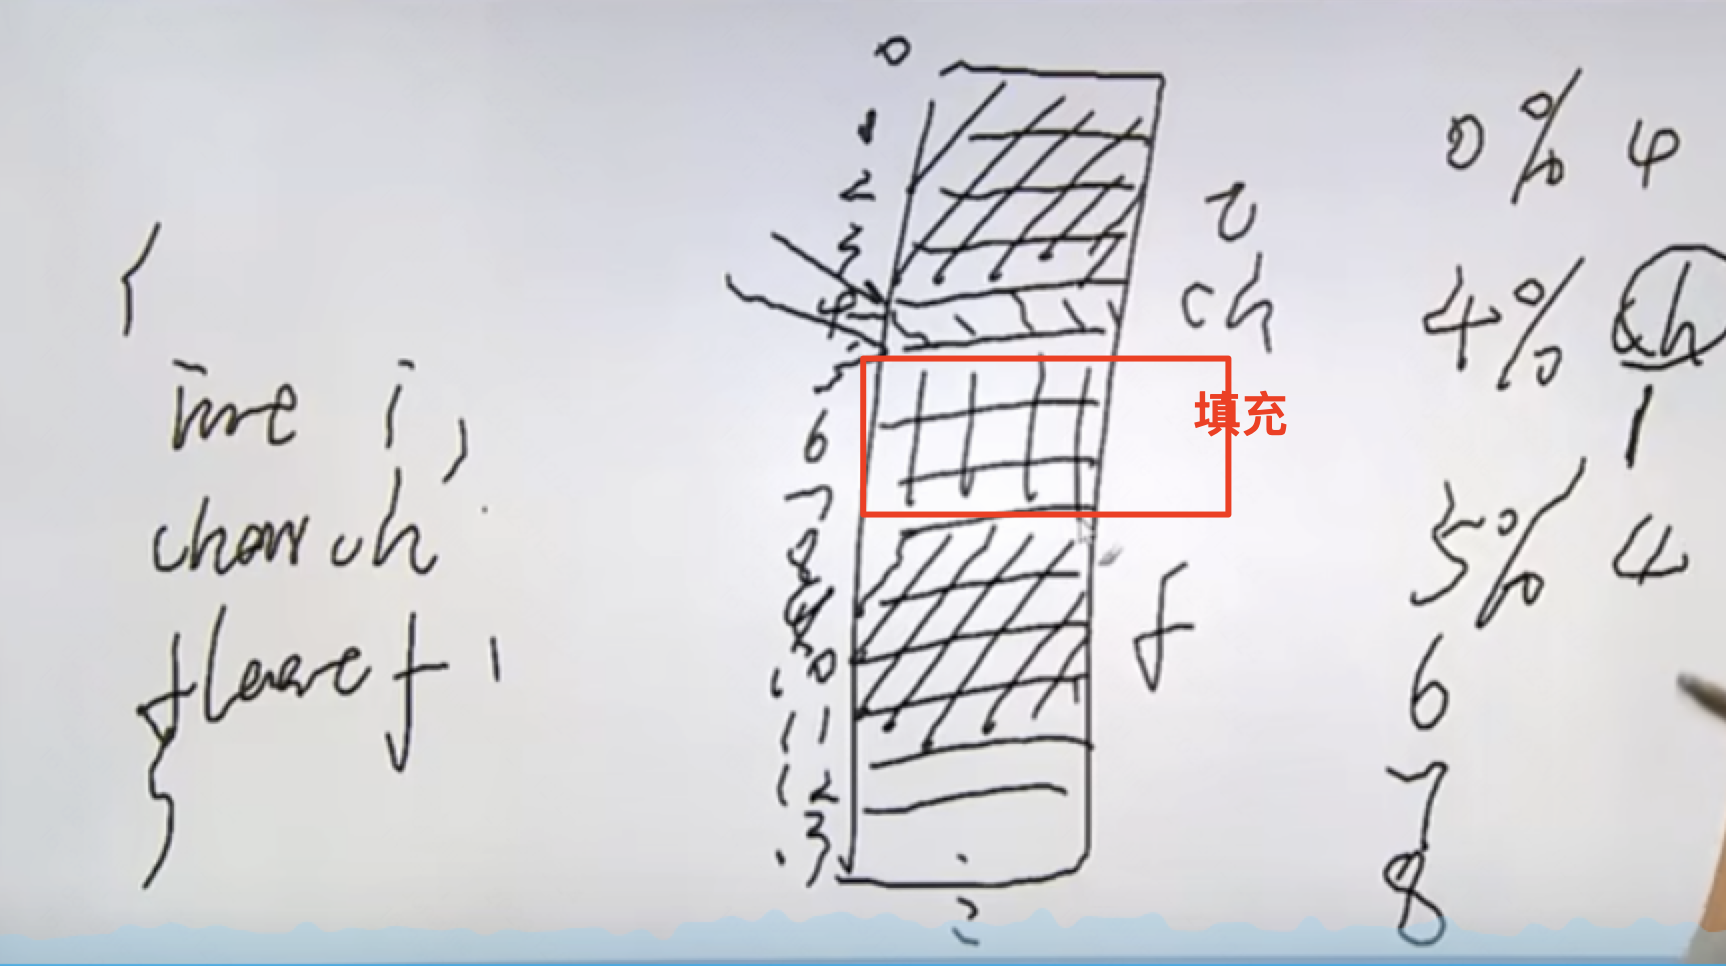 {
int i,
char ch
float f ;
}
0
1
2
3
4
5
6
7
8
9
10
11
12
13
i
ch
填充
f
0 % 4
4 % ch
1
5 % 4
6
7
8